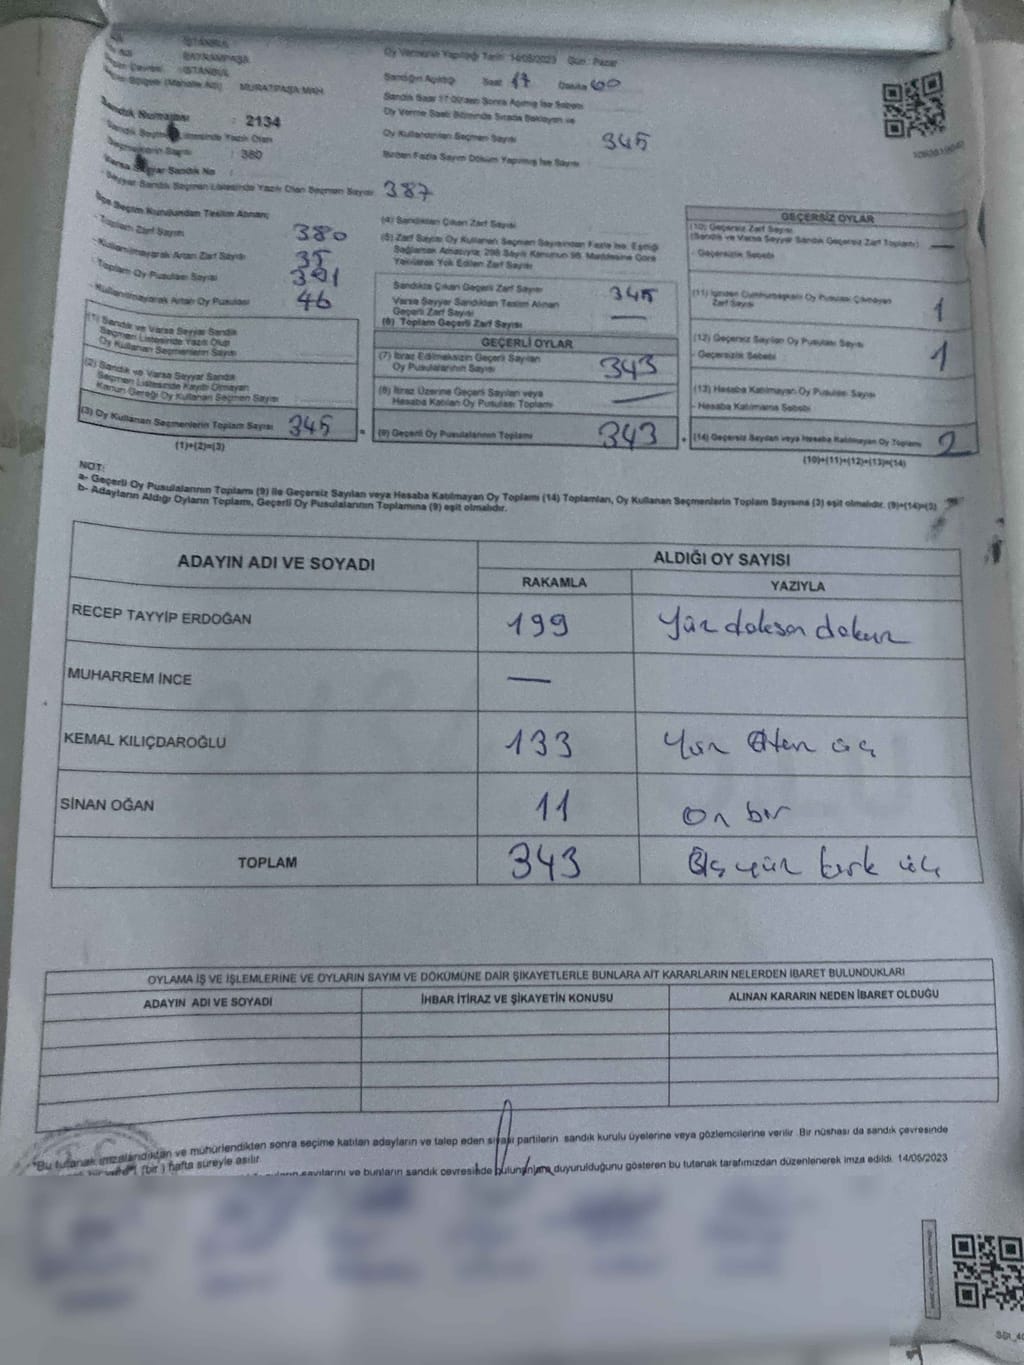 İSTANBUL
BAYRAMPAŞA
İSTANBUL
Seçim Bölgesi (Mahalle Adı) MURATPAŞA MAH.
Sandık Numarası : 2134
Sandık Seçmen Listesinde Yazılı Olan
Seçmenlerin Sayısı : 380
Varsa Seyyar Sandık No
Seyyar Sandık Seçmen Listesinde Yazılı Olan Seçmen Sayısı 387
Oy Vermenin Yapıldığı Tarih: 14/05/2023 Gün: Pazar
Sandığın Açıldığı Saat 17 Dakika 00
Sandık Saat 17.00'den Sonra Açılmış İse Sebebi
Oy Verme Saati Bitiminde Sırada Bekleyen ve
Oy Kullandırılan Seçmen Sayısı 345
Birden Fazla Sayım Döküm Yapılmış İse Sayısı
İlçe Seçim Kurulundan Teslim Alınan;
- Toplam Zarf Sayısı 380
- Kullanılmayarak Artan Zarf Sayısı 35
- Toplam Oy Pusulası Sayısı 391
- Kullanılmayarak Artan Oy Pusulası 46
(1) Sandık ve Varsa Seyyar Sandık
Seçmen Listesinde Yazılı Olup
Oy Kullanan Seçmenlerin Sayısı
(2) Sandık ve Varsa Seyyar Sandık
Seçmen Listesinde Kayıtlı Olmayan
Kanun Gereği Oy Kullanan Seçmen Sayısı
(3) Oy Kullanan Seçmenlerin Toplam Sayısı 345
(1)+(2)=(3)
(4) Sandıktan Çıkan Zarf Sayısı
(5) Zarf Sayısı Oy Kullanan Seçmen Sayısından Fazla İse, Eşitliği
Sağlamak Amacıyla; 298 Sayılı Kanunun 98. Maddesine Göre
Yakılarak Yok Edilen Zarf Sayısı
Sandıkta Çıkan Geçerli Zarf Sayısı 345
Varsa Seyyar Sandıktan Teslim Alınan
Geçerli Zarf Sayısı —
(6) Toplam Geçerli Zarf Sayısı
GEÇERLİ OYLAR
(7) İtiraz Edilmeksizin Geçerli Sayılan
Oy Pusulalarının Sayısı 343
(8) İtiraz Üzerine Geçerli Sayılan veya
Hesaba Katılan Oy Pusulası Toplamı —
(9) Geçerli Oy Pusulalarının Toplamı 343
GEÇERSİZ OYLAR
(10) Geçersiz Zarf Sayısı
(Sandık ve Varsa Seyyar Sandık Geçersiz Zarf Toplamı) —
- Geçersizlik Sebebi
(11) İçinden Cumhurbaşkanı Oy Pusulası Çıkmayan
Zarf Sayısı 1
(12) Geçersiz Sayılan Oy Pusulası Sayısı 1
- Geçersizlik Sebebi
(13) Hesaba Katılmayan Oy Pusulası Sayısı
- Hesaba Katılmama Sebebi
(14) Geçersiz Sayılan veya Hesaba Katılmayan Oy Toplamı 2
(10)+(11)+(12)+(13)=(14)
NOT:
a- Geçerli Oy Pusulalarının Toplamı (9) ile Geçersiz Sayılan veya Hesaba Katılmayan Oy Toplamı (14) Toplamları, Oy Kullanan Seçmenlerin Toplam Sayısına (3) eşit olmalıdır. (9)+(14)=(3)
b- Adayların Aldığı Oyların Toplamı, Geçerli Oy Pusulalarının Toplamına (9) eşit olmalıdır.
ADAYIN ADI VE SOYADI ALDIĞI OY SAYISI
RAKAMLA YAZIYLA
RECEP TAYYİP ERDOĞAN 199 Yüz doksan dokuz
MUHARREM İNCE —
KEMAL KILIÇDAROĞLU 133 Yüz Otuz üç
SİNAN OĞAN 11 On bir
TOPLAM 343 Üç yüz kırk üç
OYLAMA İŞ VE İŞLEMLERİNE VE OYLARIN SAYIM VE DÖKÜMÜNE DAİR ŞİKAYETLERLE BUNLARA AİT KARARLARIN NELERDEN İBARET BULUNDUKLARI
ADAYIN ADI VE SOYADI İHBAR İTİRAZ VE ŞİKAYETİN KONUSU ALINAN KARARIN NEDEN İBARET OLDUĞU
*Bu tutanak imzalandıktan ve mühürlendikten sonra seçime katılan adayların ve talep eden siyasi partilerin sandık kurulu üyelerine veya gözlemcilerine verilir. Bir nüshası da sandık çevresinde
1 (bir) hafta süreyle asılır.
sayılarını ve bunların sandık çevresinde bulunanlara duyurulduğunu gösteren bu tutanak tarafımızdan düzenlenerek imza edildi. 14/05/2023